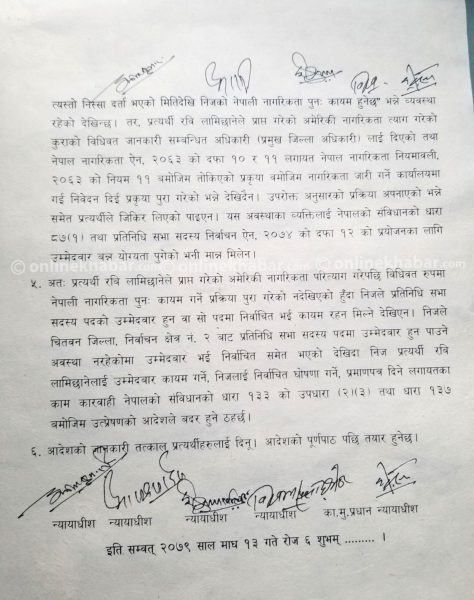 त्यस्तो निस्सा दर्ता भएको मितिदेखि निजको नेपाली नागरिकता पुनः कायम हुनेछ" भन्ने व्यवस्था
रहेको देखिन्छ। तर, प्रत्यर्थी रवि लामिछानेले प्राप्त गरेको अमेरिकी नागरिकता त्याग गरेको
कुराको विधिवत जानकारी सम्वन्धित अधिकारी (प्रमुख जिल्ला अधिकारी) लाई दिएको तथा
नेपाल नागरिकता ऐन, २०६३ को दफा १० र ११ लगायत नेपाल नागरिकता नियमावली,
२०६३ को नियम ११ बमोजिम तोकिएको प्रकृया बमोजिम नागरिकता जारी गर्ने कार्यालयमा
गई निवेदन दिई प्रकृया पुरा गरेको भन्ने देखिदैन। उपरोक्त अनुसारको प्रक्रिया अपनाएको भन्ने
समेत प्रत्यर्थीले जिकिर लिएको पाइएन। यस अवस्थाका व्यक्तिलाई नेपालको संविधानको धारा
८७(१) तथा प्रतिनिधि सभा सदस्य निर्वाचन ऐन, २०७४ को दफा १२ को प्रयोजनका लागि
उम्मेदवार बन्न योग्यता पुगेको भनी मान्न मिलेन।
५. अतः प्रत्यर्थी रवि लामिछानेले प्राप्त गरेको अमेरिकी नागरिकता परित्याग गरेपछि विधिवत रुपमा
नेपाली नागरिकता पुनः कायम गर्ने प्रक्रिया पुरा गरेको नदेखिएको हुँदा निजले प्रतिनिधि सभा
सदस्य पदको उम्मेदवार हुन वा सो पदमा निर्वाचित भई कायम रहन मिल्ने देखिएन। निजले
चितवन जिल्ला, निर्वाचन क्षेत्र नं. २ बाट प्रतिनिधि सभा सदस्य पदमा उम्मेदवार हुन पाउने
अवस्था नरहेकोमा उम्मेदवार भई निर्वाचित समेत भएको देखिदा निज प्रत्यर्थी रवि
लामिछानेलाई उम्मेदवार कायम गर्ने, निजलाई निर्वाचित घोषणा गर्ने, प्रमाणपत्र दिने लगायतका
काम कारवाही नेपालको संविधानको धारा १३३ को उपधारा (२)(३) तथा धारा १३७
बमोजिम उत्प्रेषणको आदेशले बदर हुने ठहर्छ।
६. आदेशको जानकारी तत्काल प्रत्यर्थीहरुलाई दिनू। आदेशको पूर्णपाठ पछि तयार हुनेछ।
न्यायाधीश न्यायाधीश न्यायाधीश न्यायाधीश का.मु.प्रधान न्यायाधीश
इति सम्वत् २०७९ साल माघ १३ गते रोज ६ शुभम् ......... ।
© onlinekhabar.com © onlinekhabar.com © onlinekhabar.com